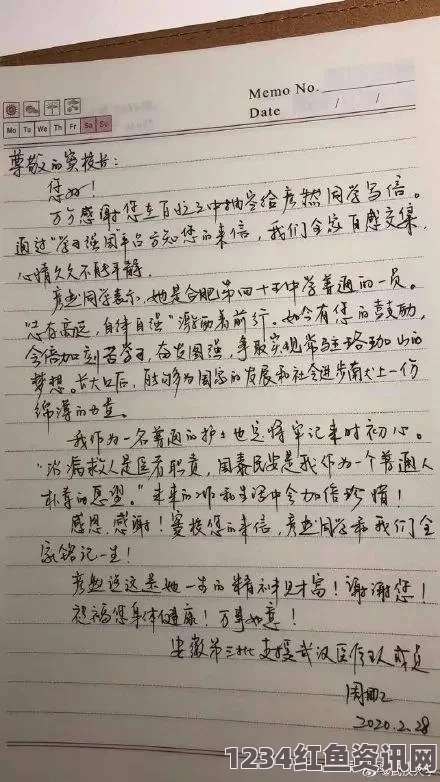 Memo No.
Mo Tu We Th Fr Sa Su
Date / /
尊敬的窦校长：
您好！
万分感谢您在百忙之中抽空给彦然同学写信。
通过“学习强国”平台方知您的来信，我们全家百感交集，
心情久久不能平静。
彦然同学表示，她是合肥第四十五中学普通的一员。
“志存高远，自律自强”激励着前行。如今有您的鼓励，
会倍加刻苦学习，奋发图强，争取实现常驻珞珈山的
梦想。长大口后，能够为国家的发展和社会进步献上一份
绵薄的力量。
我作为一名普通的护士也定将牢记来时初心。
“治病救人是医者职责，国泰民安是我作为一个普通人
朴素的愿望。”未来的工作和生活中会加倍珍惜！
感恩，感谢！窦校您的来信，彦然同学和我们全
家铭记一生！
彦然说这是她一生的精神财富！谢谢您！
祝福您身体健康！万事如意！
安徽第三批支援武汉医疗队成员
周
2020.2.28
1234红鱼资讯网